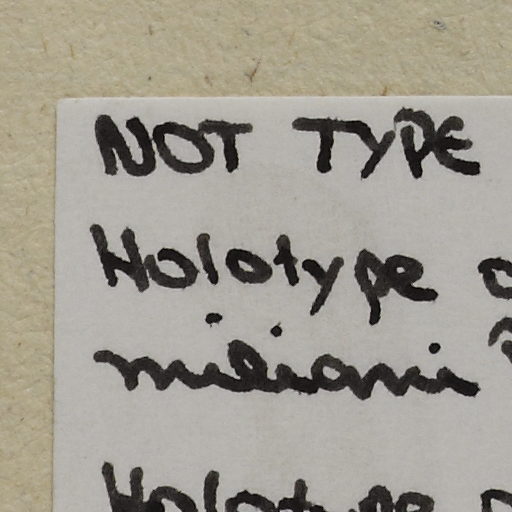 NOT TYPE
Holotype
miliani
Holotype